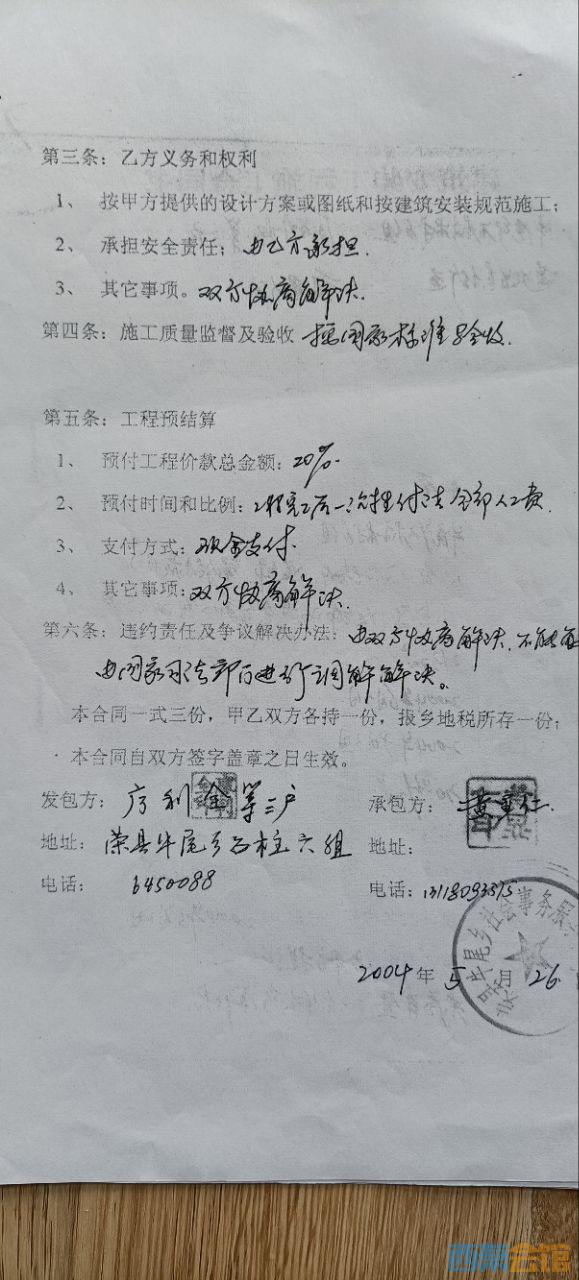 第三条：乙方义务和权利
1、 按甲方提供的设计方案或图纸和按建筑安装规范施工；
2、 承担安全责任；由乙方承担.
3、 其它事项。双方协商解决.
第四条：施工质量监督及验收 按国家标准验收.
第五条：工程预结算
1、 预付工程价款总金额：20%.
2、 预付时间和比例：工程完工后一次性付清全部人工费.
3、 支付方式：现金支付.
4、 其它事项：双方协商解决.
第六条：违约责任及争议解决办法：由双方协商解决.不能
由国家司法部门进行调解解决。
本合同一式三份，甲乙双方各持一份，报乡地税所存一份；
本合同自双方签字盖章之日生效。
发包方： 利金等三户 承包方：
地址： 荣县牛尾乡石柱六组 地址：
电话： 6450088 电话：
牛尾乡社会事务
2004年5月26
西祠会馆